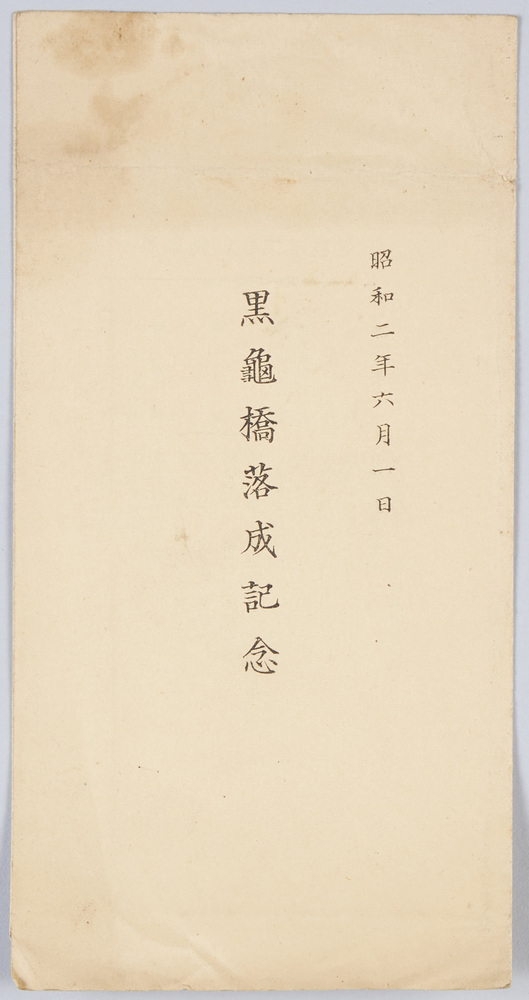 昭和二年六月一日
黒龜橋落成記念